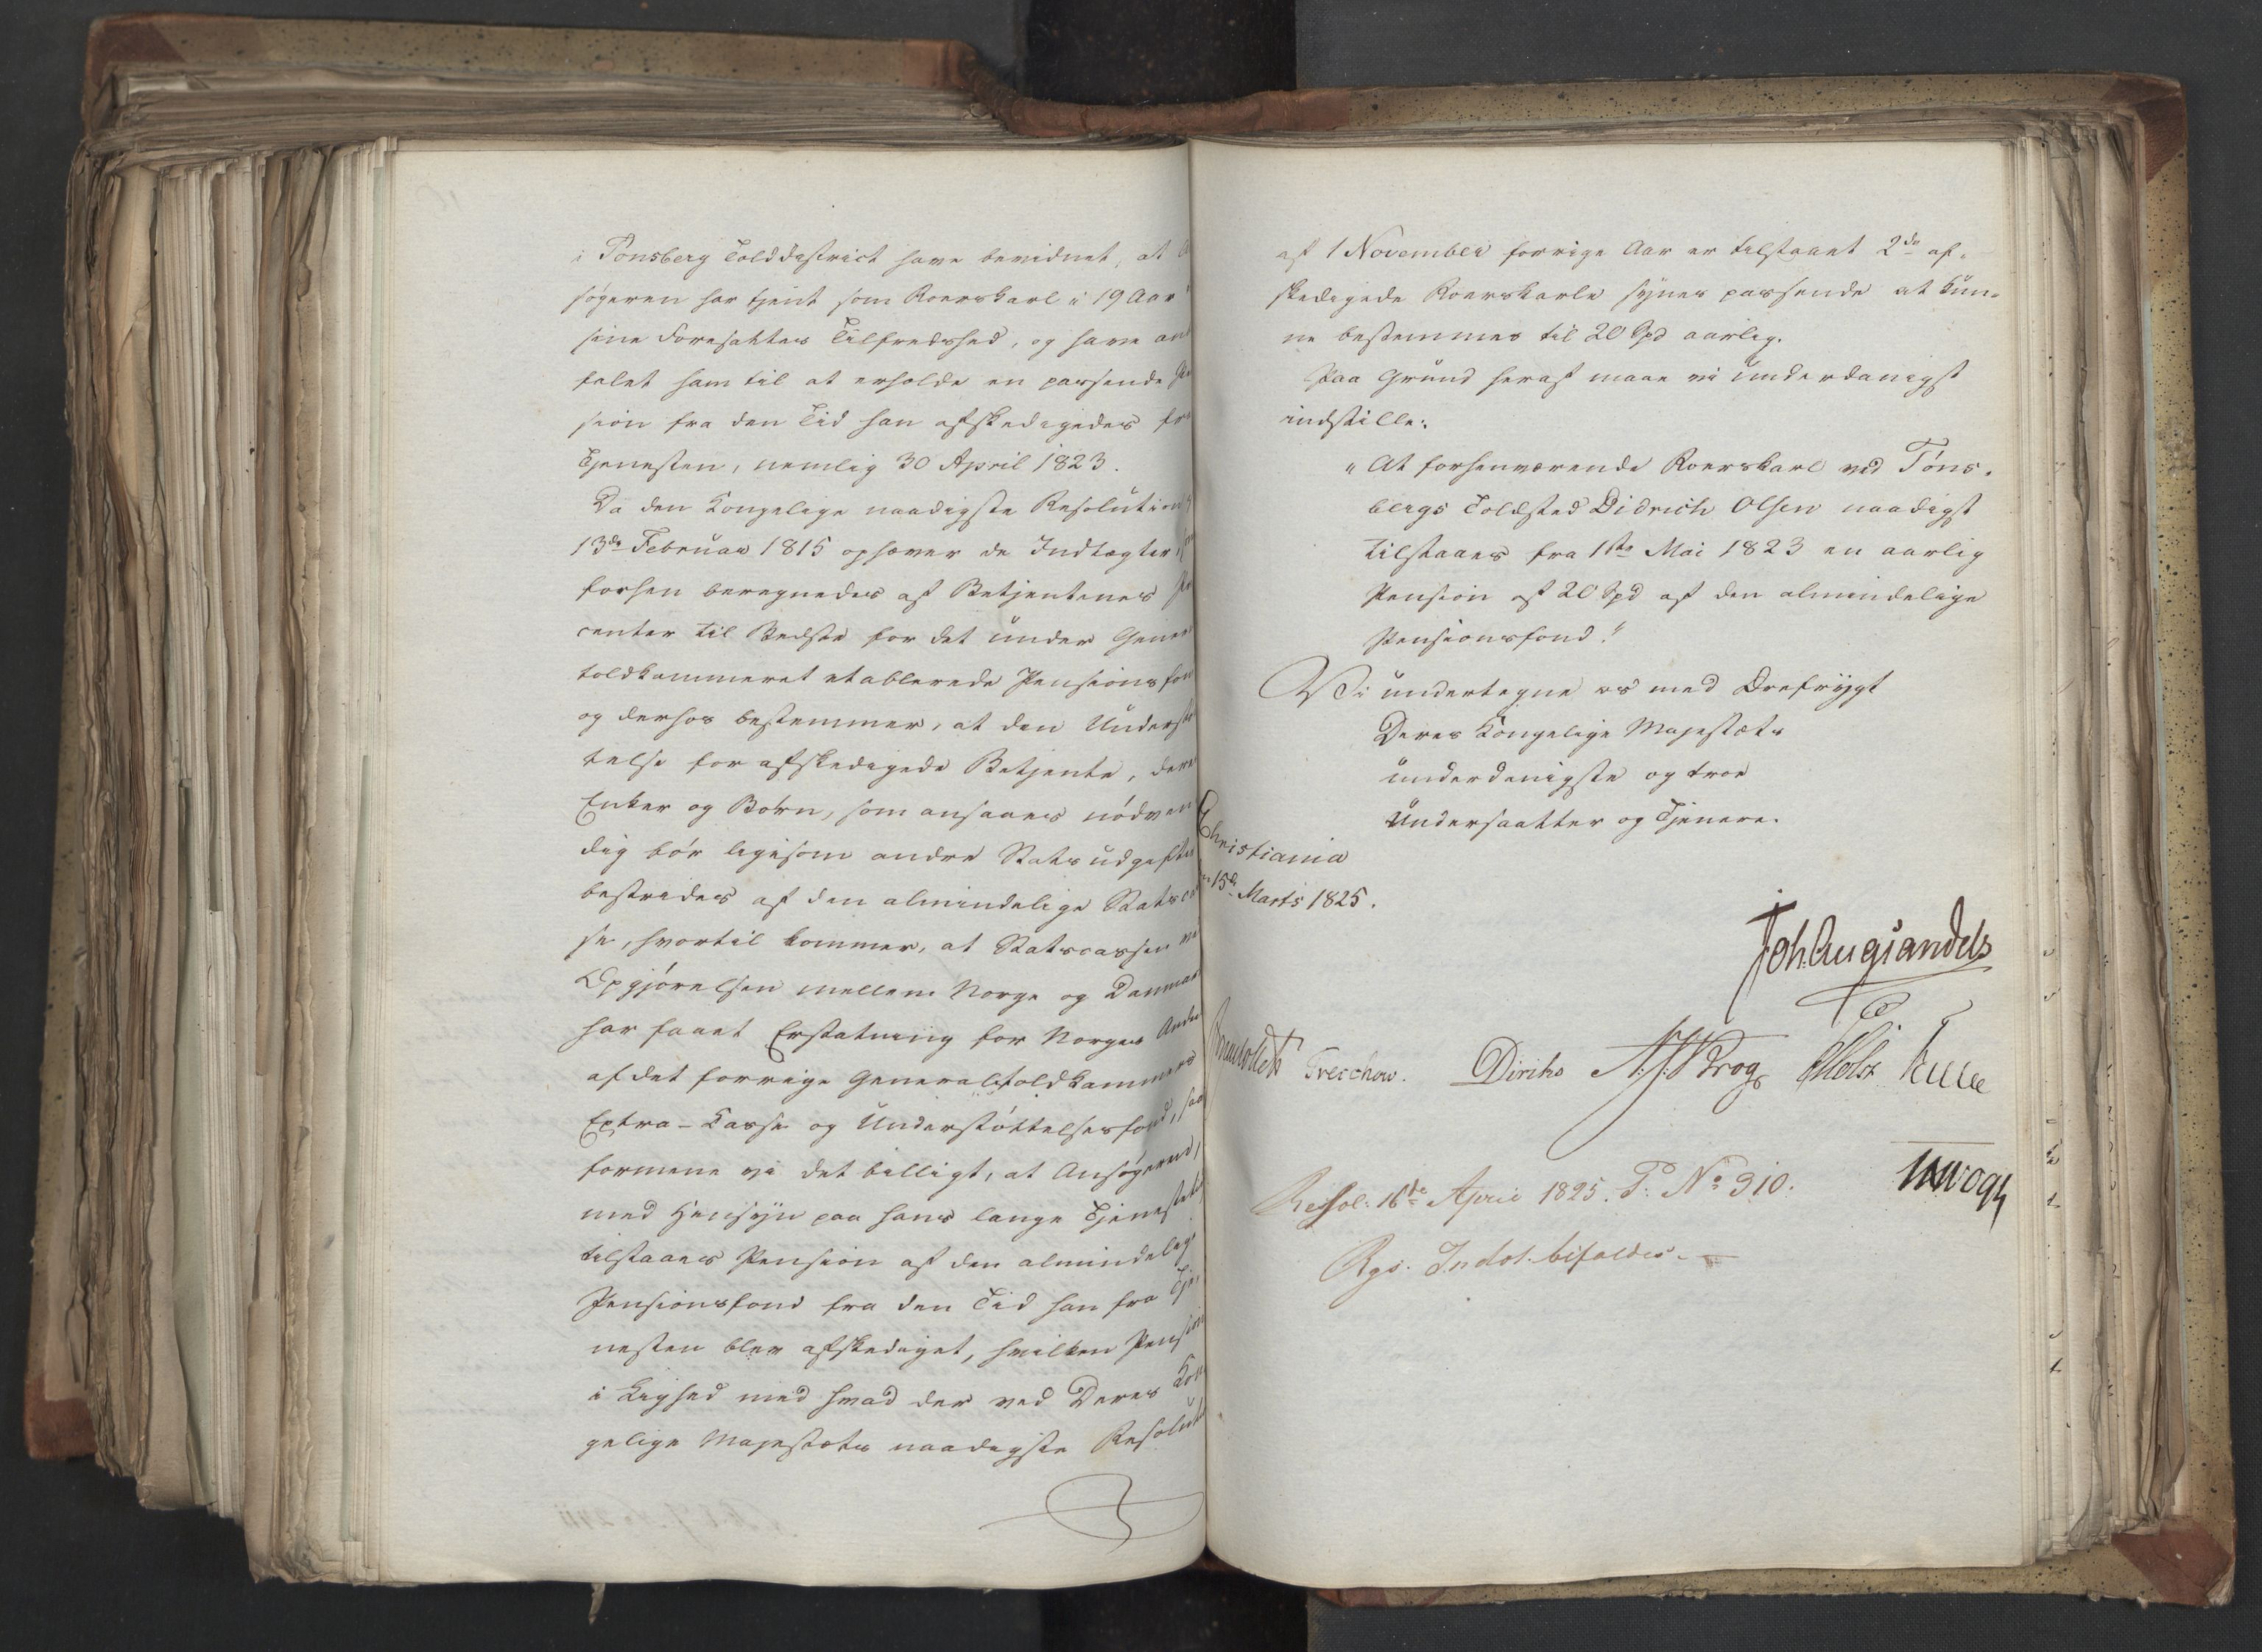 i Tønsberg Tolddistrict have bevidnet, at
søgeren har tjent som Roerskarl i 19 Aar
sine Foresattes Tilfredshed, og have an
falet ham til at erholde en passende
sion fra den Tid han afskedigedes fra
Tjenesten, nemlig 30 April 1823.
Da den Kongelige naadigste Resolution
13de Februar 1815 ophæver de Indtægter,
forhen beregnedes af Betjentenes Pro
center til Bedste for det under General
toldkammeret etablerede Pensionsfon
og derhos bestemmer, at den Underst
telse for afskedigede Betjente, dere
Enker og Børn, som ansaaes nødven
dig bør ligesom andre Statsudgifter
bestrides af den almindelige Statscas
se, hvortil kommer, at Statscassen ve
Opgjørelsen mellem Norge og Danmar
har faaet Erstatning for Norges Andee
af det forrige Generaltoldkammers
Extra-Casse og Understøttelsesfond, saa
formene vi det billigt, at Ansøgeren,
med Hensyn paa hans lange Tjenestetid
tilstaaes Pension af den almindelig
Pensionsfond fra den Tid han fra Tje
nesten blev afskediget, hvilken Pension
i Lighed med hvad der ved Deres Kon
gelige Majestæts naadigste Resoluti
af 1 November forrige Aar er tilstaaet 2de af-
skedigede Roerskarle synes passende at kun-
ne bestemmes til 20 Spd aarlig.
Paa Grund heraf maae vi underdanigst
indstille:
"At forhenværende Roerskarl ved Tøns-
bergs Toldsted Didrich Olsen naadigst
tilstaaes fra 1ste Mai 1823 en aarlig
Pension af 20 Spd af den almindelige
Pensionsfond."
Vi undertegne os med Ærefrygt
Deres Kongelige Majestæts
underdanigste og troe
Undersaatter og Tjenere.
Christiania
15de Marts 1825.
Joh. Aug Sandels
Treschow. Diriks Krog Holst
Resol: 16de April 1825. P: No 310.
Rgs. Indst. bifaldes.